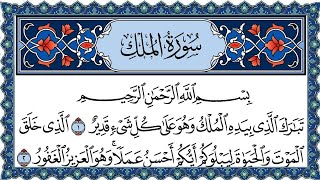 سُورَةُ الْمُلْكِ
بِسْمِ اللَّهِ الرَّحْمَٰنِ الرَّحِيمِ
تَبَارَكَ الَّذِي بِيَدِهِ الْمُلْكُ وَهُوَ عَلَىٰ كُلِّ شَيْءٍ قَدِيرٌ ١ الَّذِي خَلَقَ
الْمَوْتَ وَالْحَيَوٰةَ لِيَبْلُوَكُمْ أَيُّكُمْ أَحْسَنُ عَمَلًا ۚ وَهُوَ الْعَزِيزُ الْغَفُورُ ٢